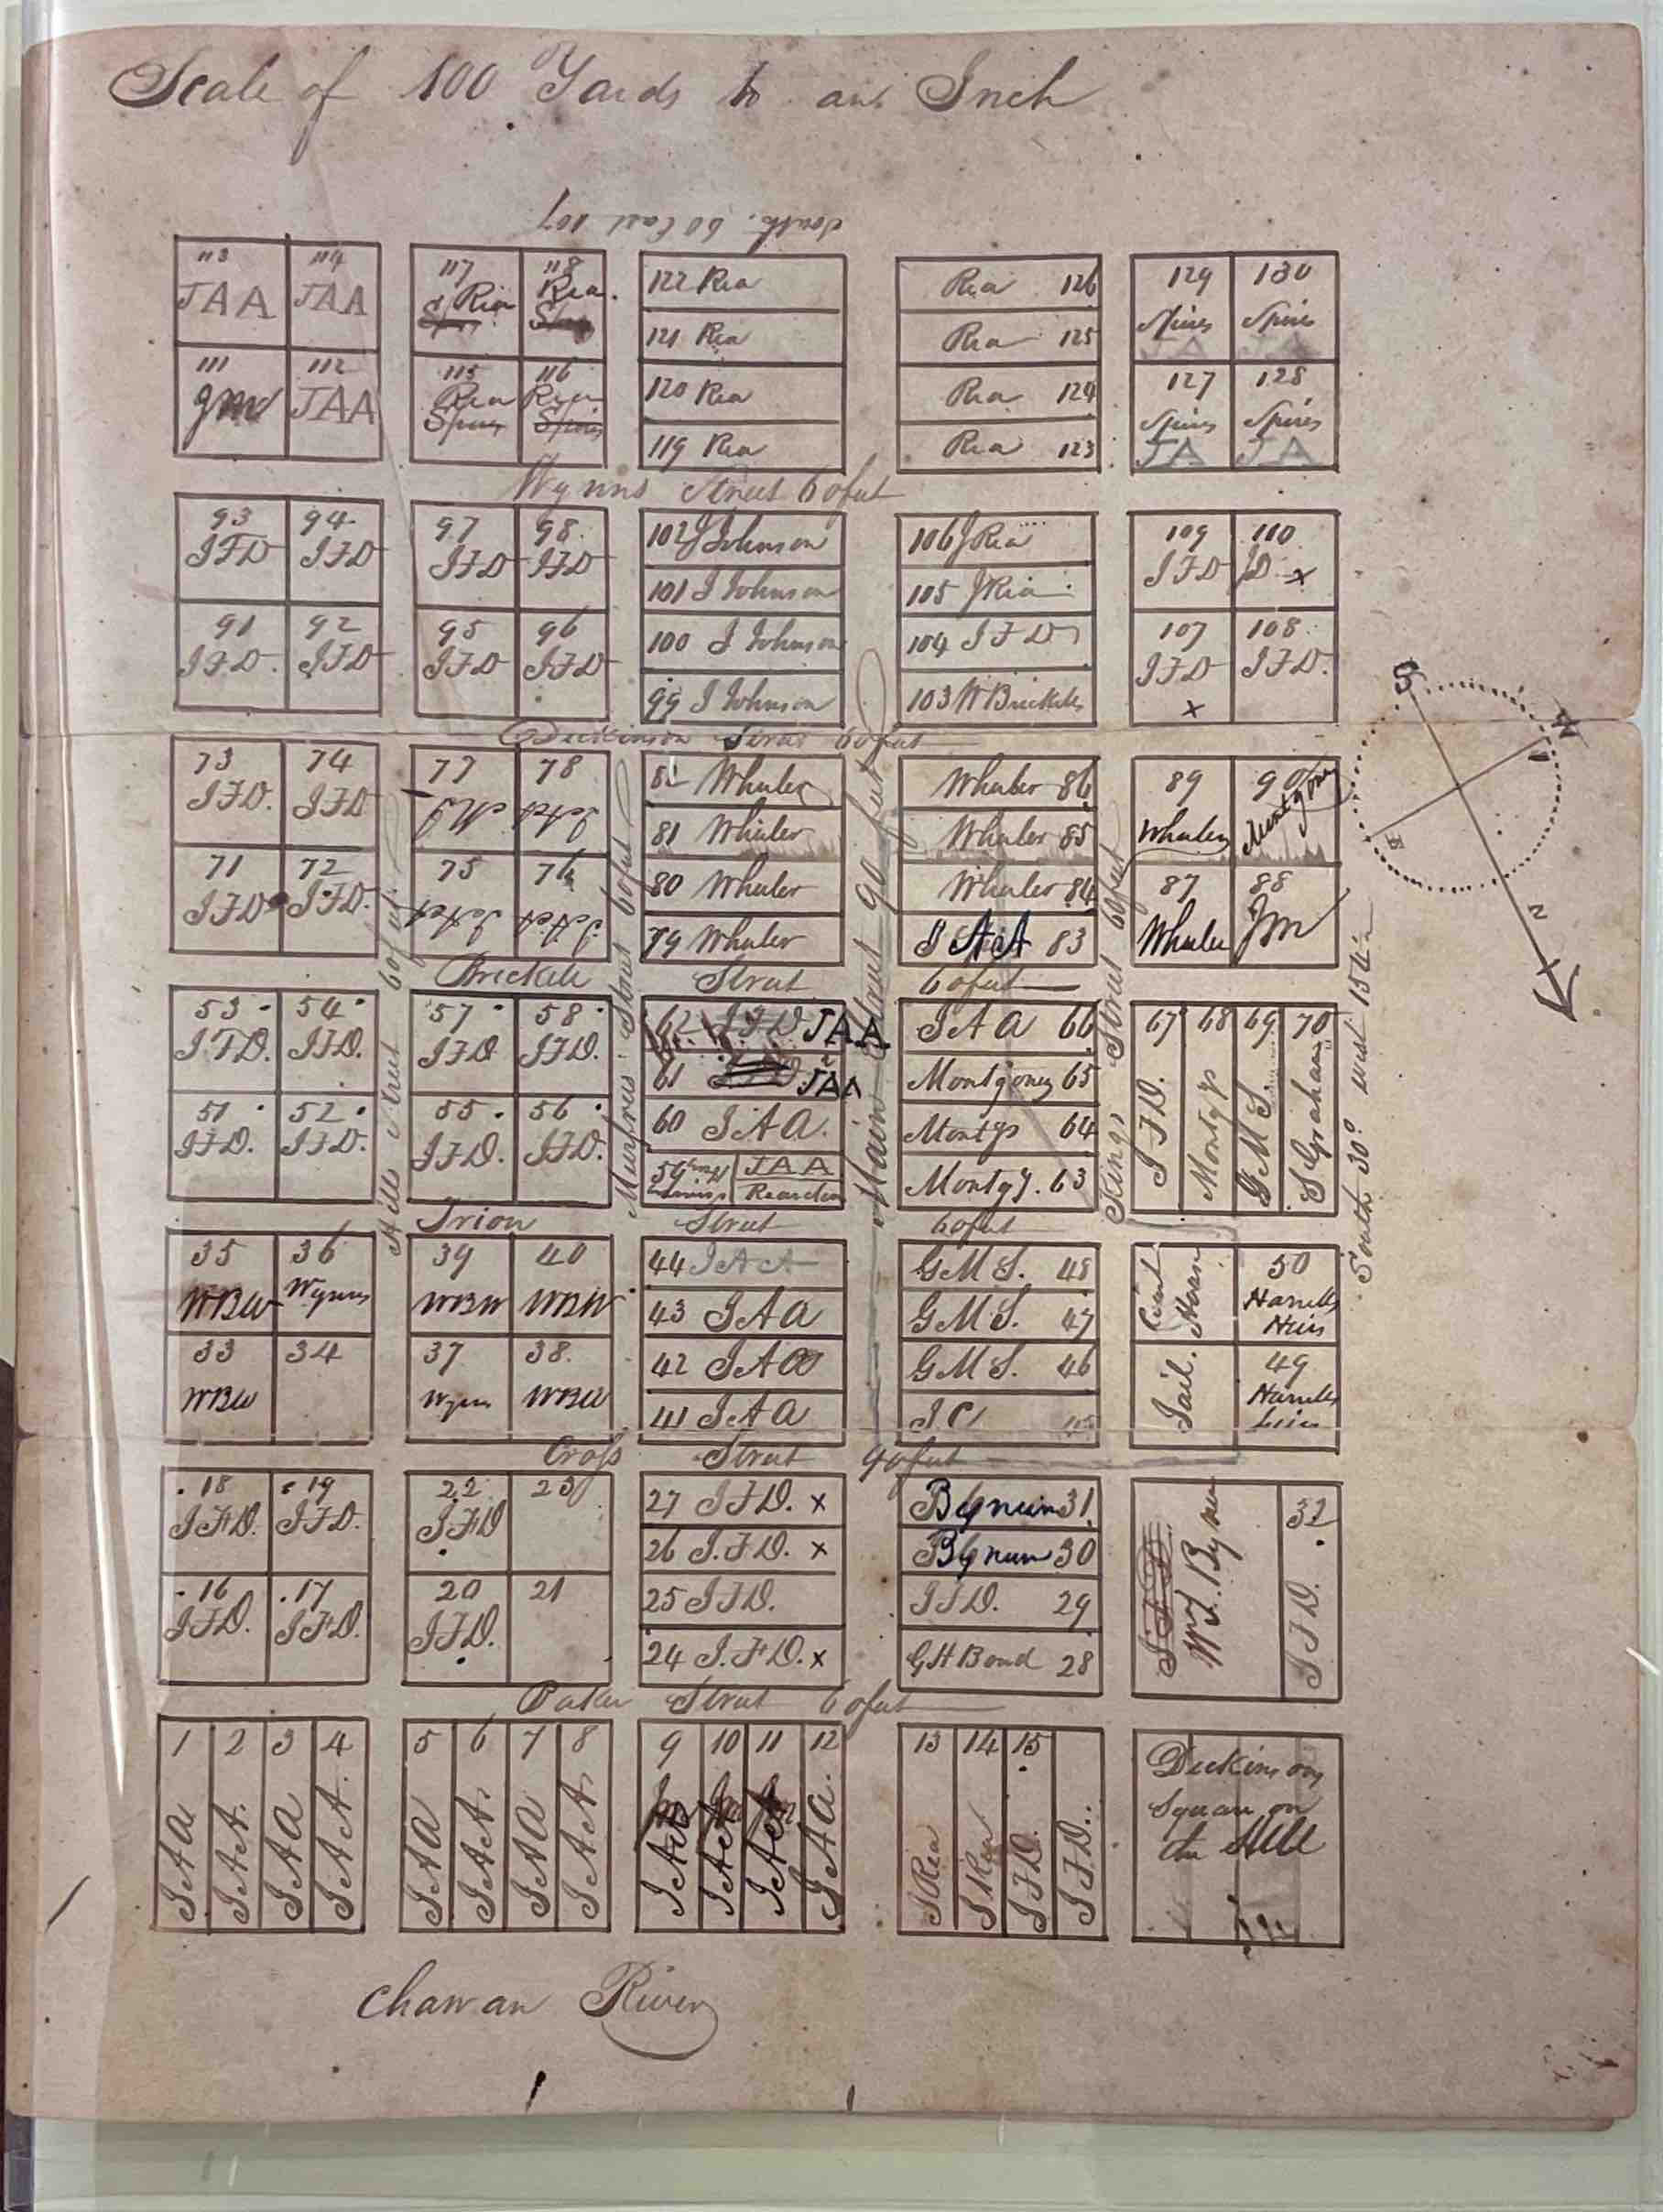 Scale of 100 Yards to an Inch
South. 60 East 107
113 JAA
114 JAA
111
112 JAA
117 Rea
118 Rea.
115 Rea Spires
116 Rea Spires
122 Rea
121 Rea
120 Rea
119 Rea
Rea 126
Rea 125
Rea 124
Rea 123
129 Spires JA
130 Spires JA
127 Spires JA
128 Spires JA
Wynns Street 60 feet
93 JFD
94 JFD
91 JFD.
92 JFD
97 JFD
98 JFD
95 JFD
96 JFD
102 J Johnson
101 J Johnson
100 J Johnson
99 J Johnson
106 J Rea
105 J Rea
104 JFD
103 W Brickles
109 JFD
110 JD x
107 JFD x
108 JFD.
Dickinson Street 60 feet
73 JFD.
74 JFD
71 JFD
72 JFD.
77
78 JAA
75 JAA
76 JAA
Wheeler
81 Wheeler
80 Wheeler
79 Wheeler
Wheeler 86
Wheeler 85
Wheeler 84
JAA 83
89 Wheeler
90 Montgomery
87 Wheeler
88 JM
S
W
E
N
Brickle Street 60 feet
53 JFD.
54 JFD.
51 JFD.
52 JFD.
57 JFD
58 JFD.
55 JFD.
56 JFD.
62 JFD JAA
61 JAA
60 JAA.
59 JAA Reardon
JAA 66
Montgomey 65
Montgy 64
Montgy. 63
67 JFD.
68 Montgy
69 GMS.
70 S Graham
Hills Street 60 feet
Murfrees Street 60 feet
Main Street 90 feet
Kings Street 60 feet
South 30° west 154
Trion Street 60 feet
35 WBW
36 Wynns
33 WBW
34
39 WBW
40 WBW
37 Wynns
38. WBW
44 JAA
43 JAA
42 JAA
41 JAA
GMS. 48
GMS. 47
GMS. 46
J.C
Court House
Jail.
50 Harrells Heirs
49 Harrells heirs
Cross Street 90 feet
18 JFD.
19 JFD.
16 JFD.
17 JFD.
22 JFD
23
20 JFD.
21
27 JFD. x
26 J.FD. x
25 JFD.
24 J.FD. x
Bynum 31
Bynum 30
JFD. 29
GH Bond 28
JFD.
Wd. Bynum
32 JFD.
Baker Street 60 feet
1 JAA
2 JAA.
3 JAA
4 JAA.
5 JAA
6 JAA.
7 JAA
8 JAA.
9 JAA
10 JAA
11 JAA
12 JAA.
13 J Rea
14 J Rea
15 JFD.
JFD.
Dickinsons
Square on
the Hill
Chowan River